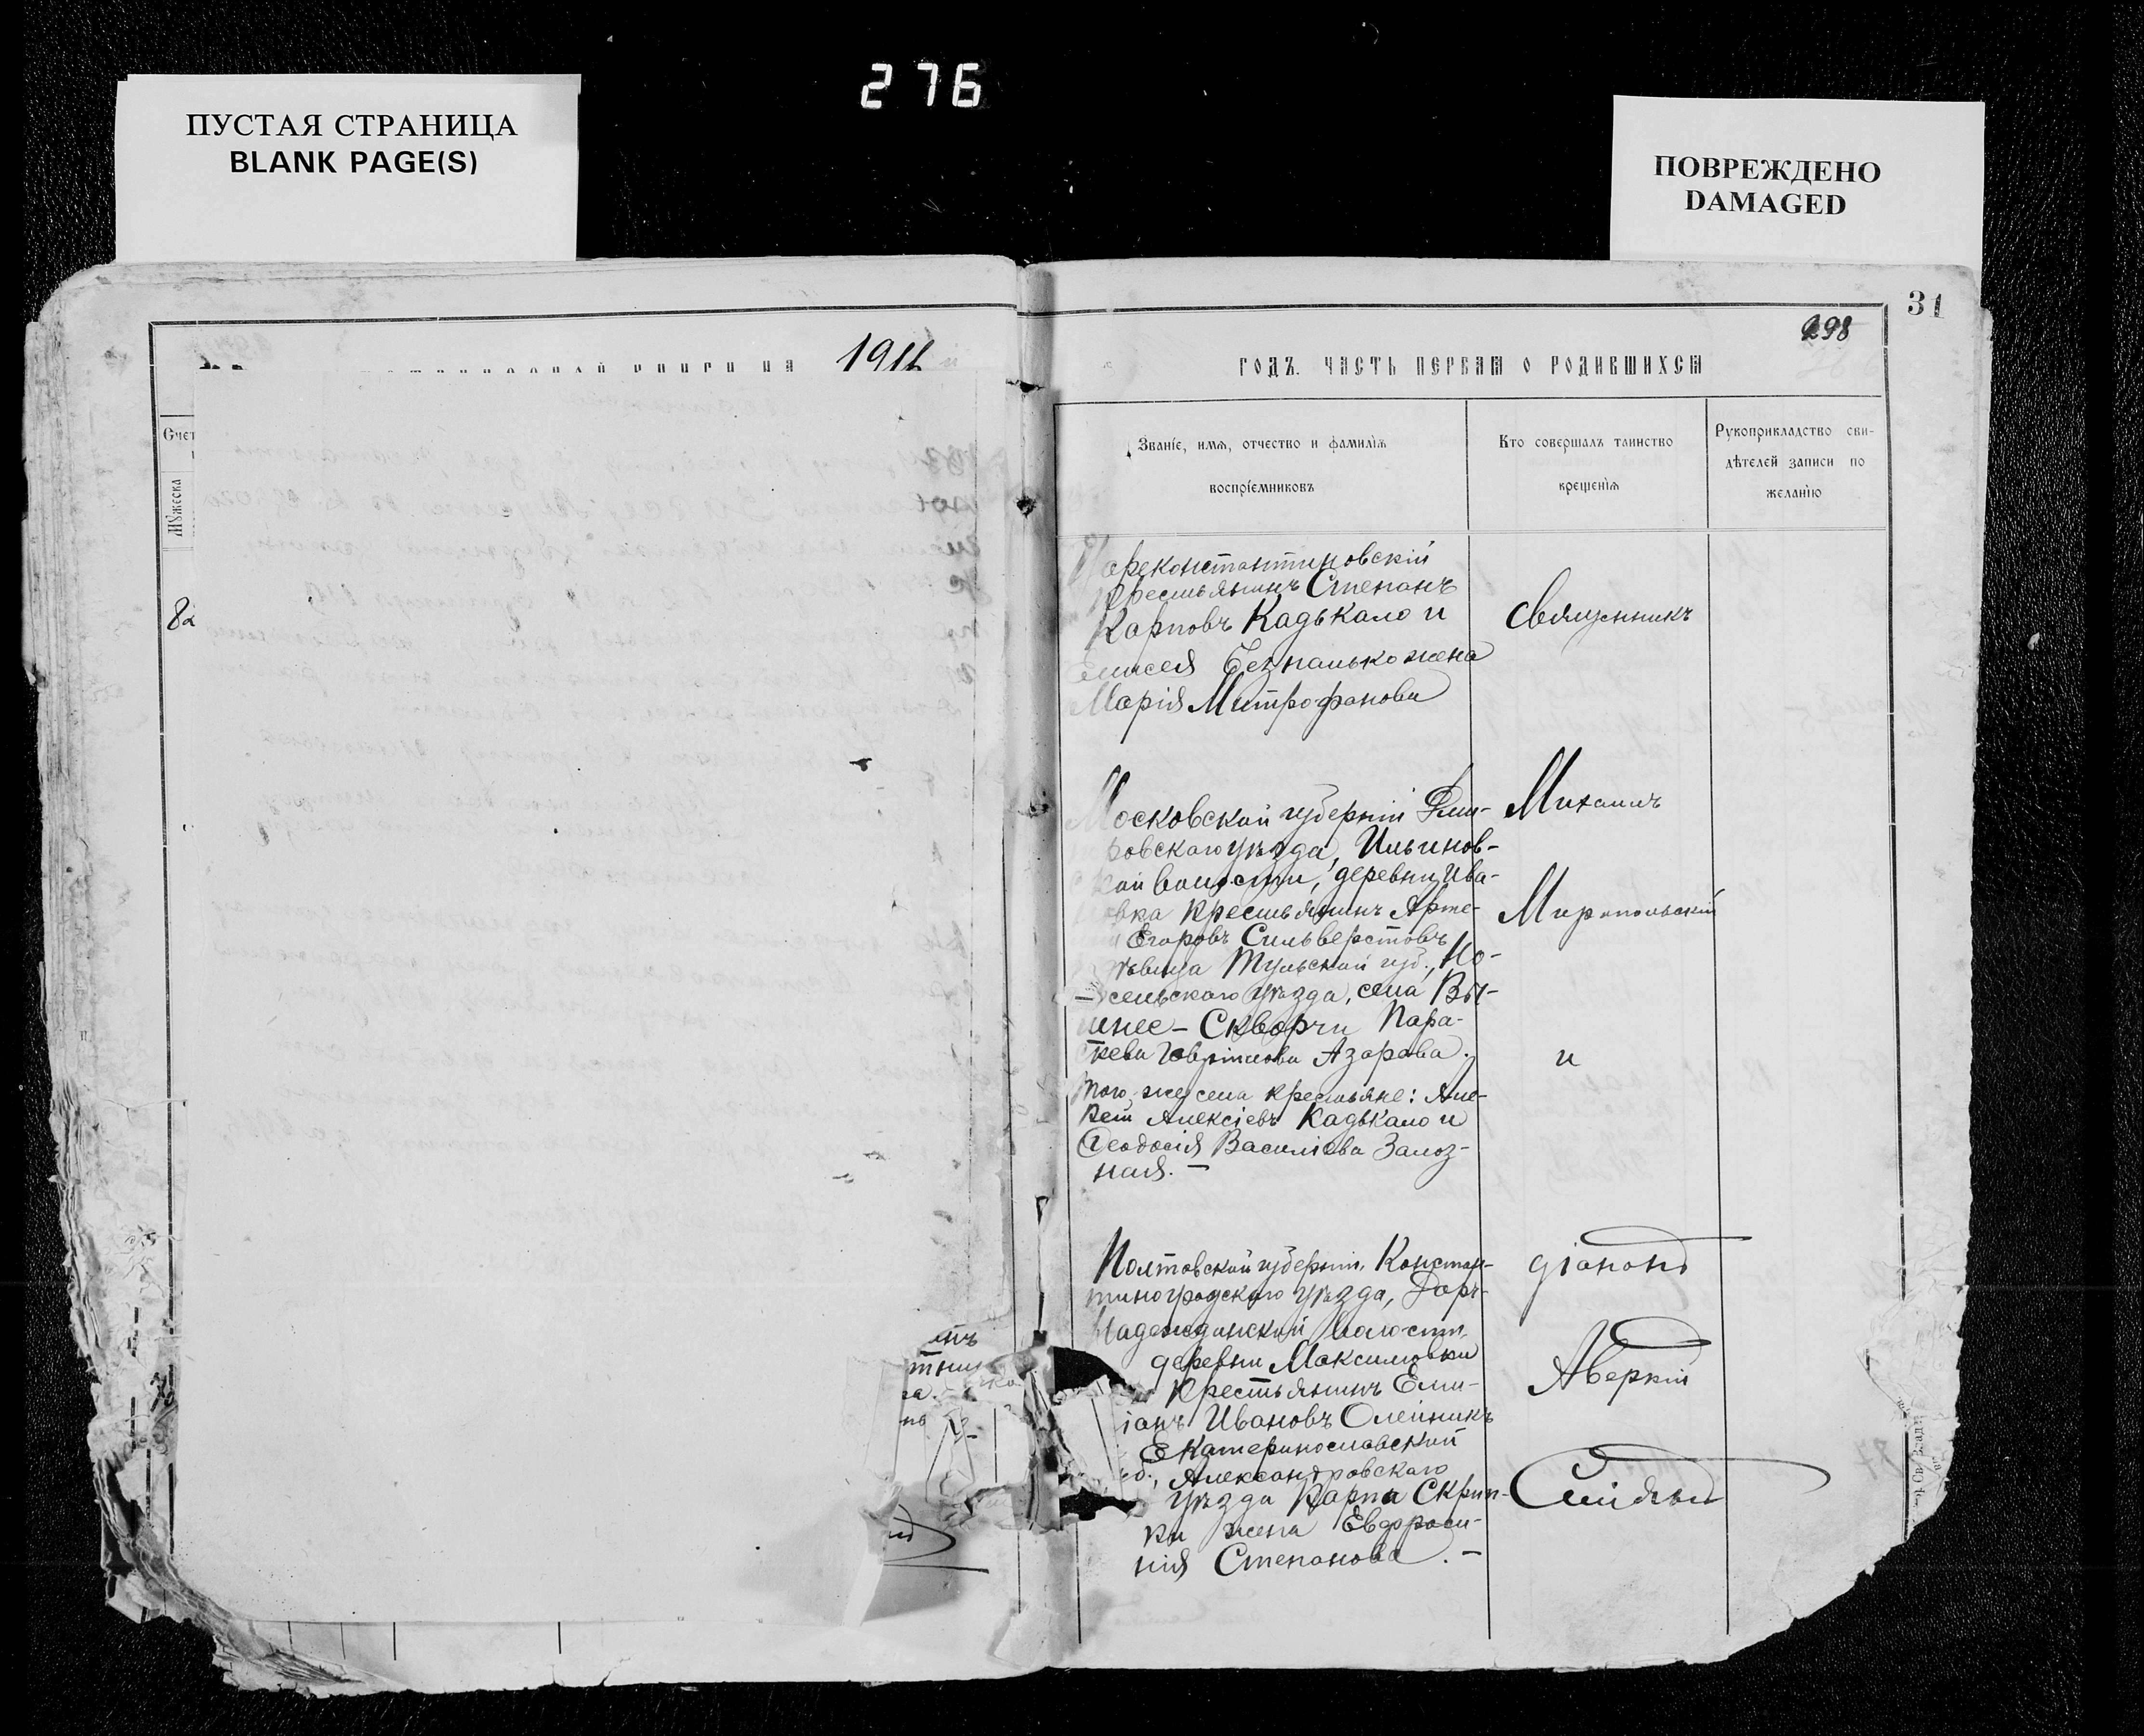 276
ПУСТАЯ СТРАНИЦА
BLANK PAGE(S)
ПОВРЕЖДЕНО
DAMAGED
31
298
191
годъ. часть первая о родившихся
Счет
Мужеска
Званіе, имя, отчество и фамилія
воспріемниковъ
Кто совершалъ таинство
крещенія
Рукоприкладство сви-
дѣтелей записи по
желанію
константиновскій
крестьянинъ Степанъ
Карповъ Кадькало и
Елисея жена
Марія Митрофанова
Священникъ
Московской губерніи Дми-
ровскаго уѣзда, Ильинов-
кой волости, деревни Ива-
овка крестьянинъ Арте-
Егоровъ Сильверстовъ
дѣвица Тульской губ., Но-
сельскаго уѣзда, села Вы-
шнее-Скворчи Пара-
скева Азарова.
Того-же села крестьяне: Але-
ксѣй Алексіевъ Кадькало и
Ѳеодосія Василіева Залоз-
ная. —
Михаилъ
Миропольскій
и
Полтавской губерніи, Констан-
тиноградскаго уѣзда, Дар-
Надеждинской волости
деревни Максимовки
крестьянинъ Еми-
ліанъ Ивановъ Олейникъ
Екатеринославской
уб., Александровскаго
уѣзда Карпа Скрип-
ки жена Евфроси-
нія Степанова. —
діаконъ
Аверкій